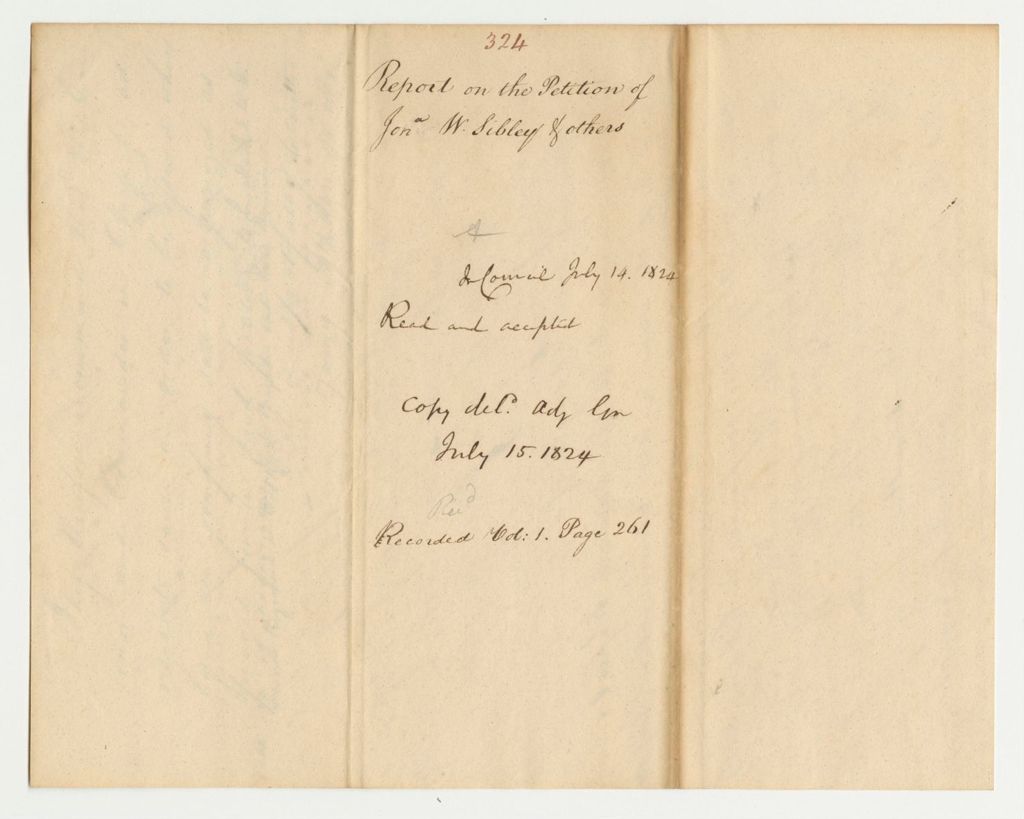 324
Report on the Petition of
Jonª W. Sibley & others
In Council July 14. 1824
Read and accepted
Copy delᵈ. Adj Gen
July 15. 1824
Recᵈ
Recorded Vol: 1. Page 261